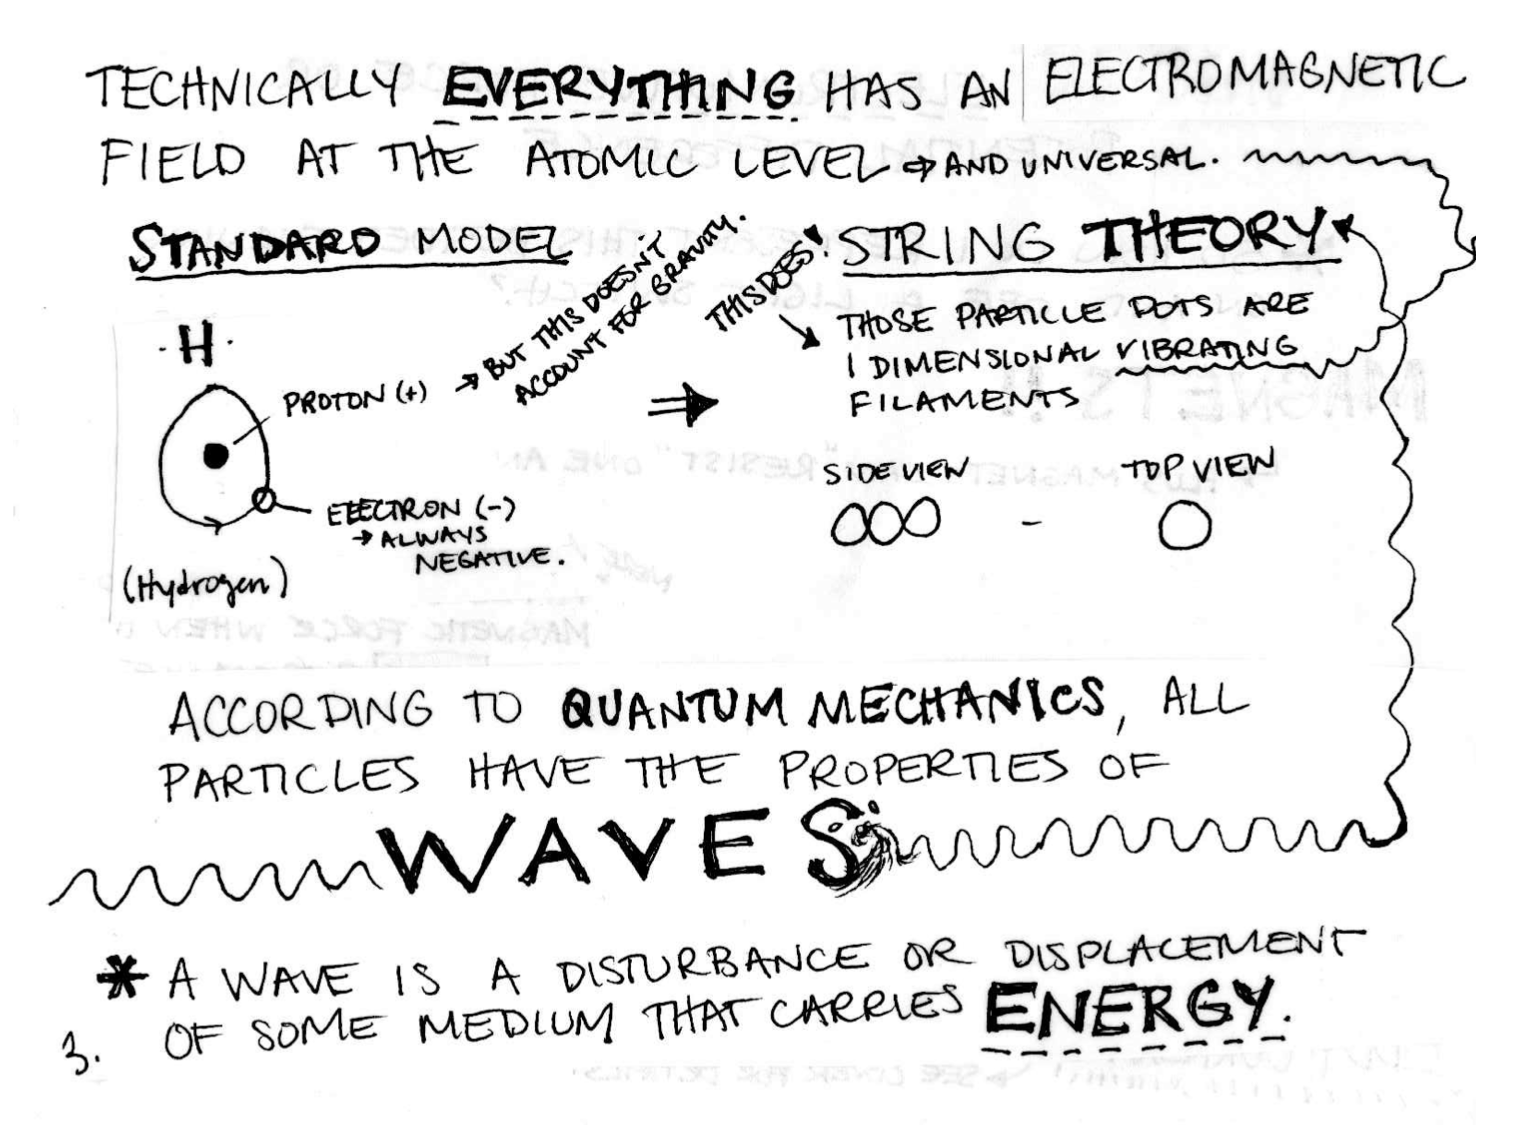 TECHNICALLY EVERYTHING HAS AN ELECTROMAGNETIC
FIELD AT THE ATOMIC LEVEL ⇒ AND UNIVERSAL.
STANDARD MODEL
H
PROTON (+)
→ BUT THIS DOESN'T
ACCOUNT FOR GRAVITY.
ELECTRON (-)
→ ALWAYS
NEGATIVE.
(Hydrogen)
⇒
THIS DOES!
STRING THEORY
THOSE PARTICLE DOTS ARE
1 DIMENSIONAL VIBRATING
FILAMENTS
SIDE VIEW - TOP VIEW
ACCORDING TO QUANTUM MECHANICS, ALL
PARTICLES HAVE THE PROPERTIES OF
WAVES
* A WAVE IS A DISTURBANCE OR DISPLACEMENT
OF SOME MEDIUM THAT CARRIES ENERGY.
3.